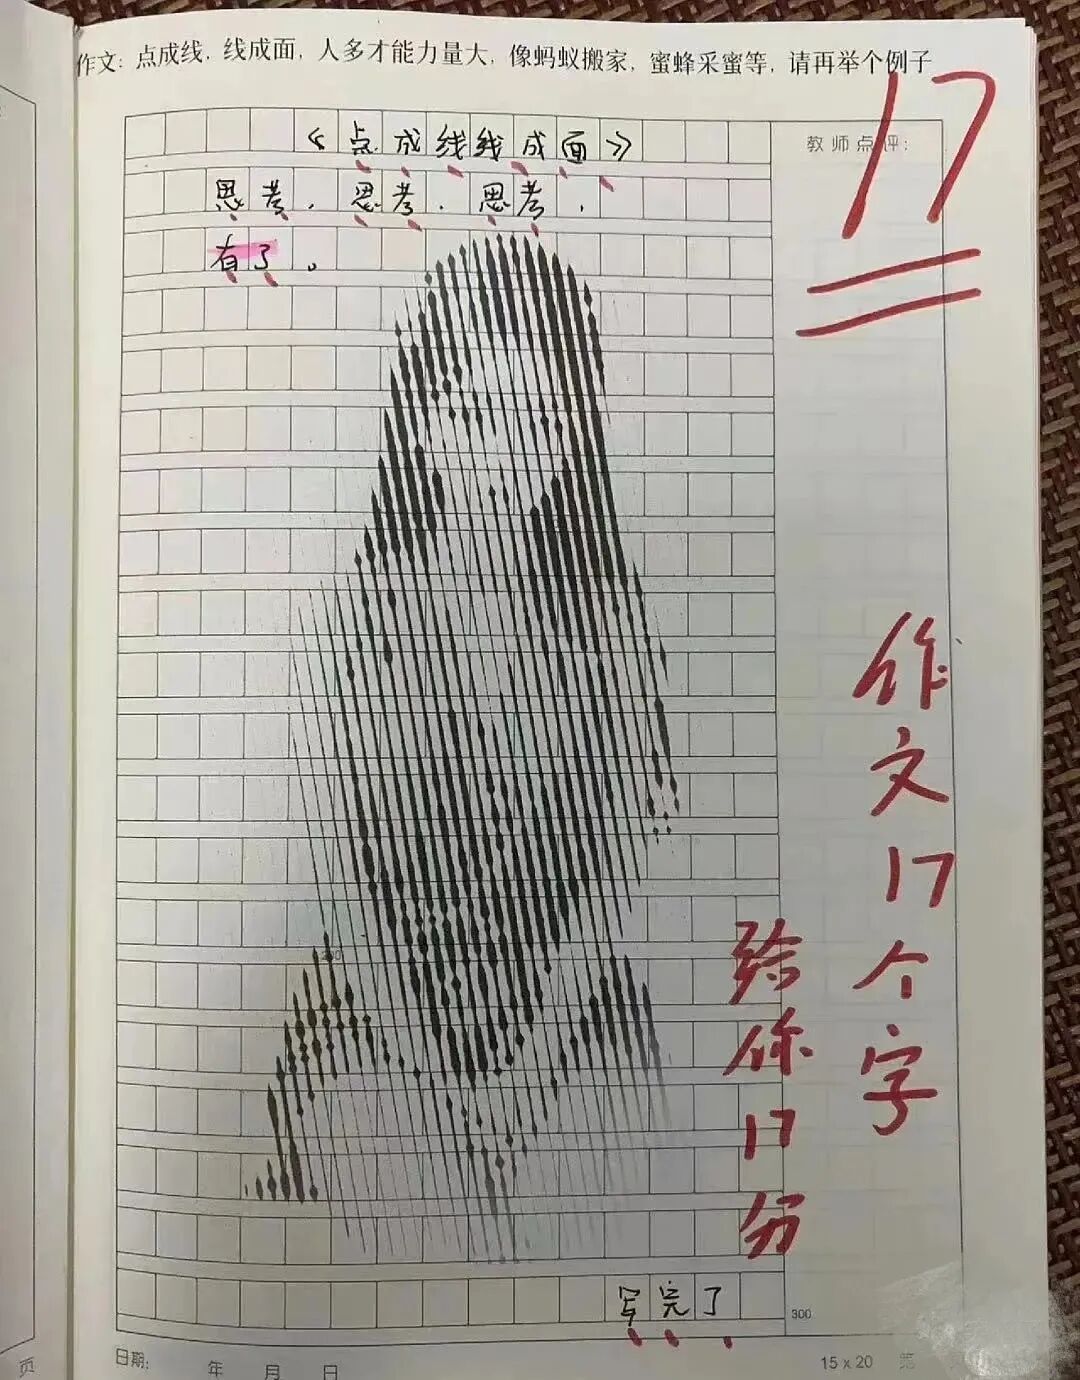 作文：点成线，线成面，人多才能力量大，像蚂蚁搬家，蜜蜂采蜜等，请再举个例子
17
教师点评：
《点成线线成面》
思考，思考，思考，
有了。
作文17个字
给你17分
写完了
300
日期：　年　月　日
15×20　第
页